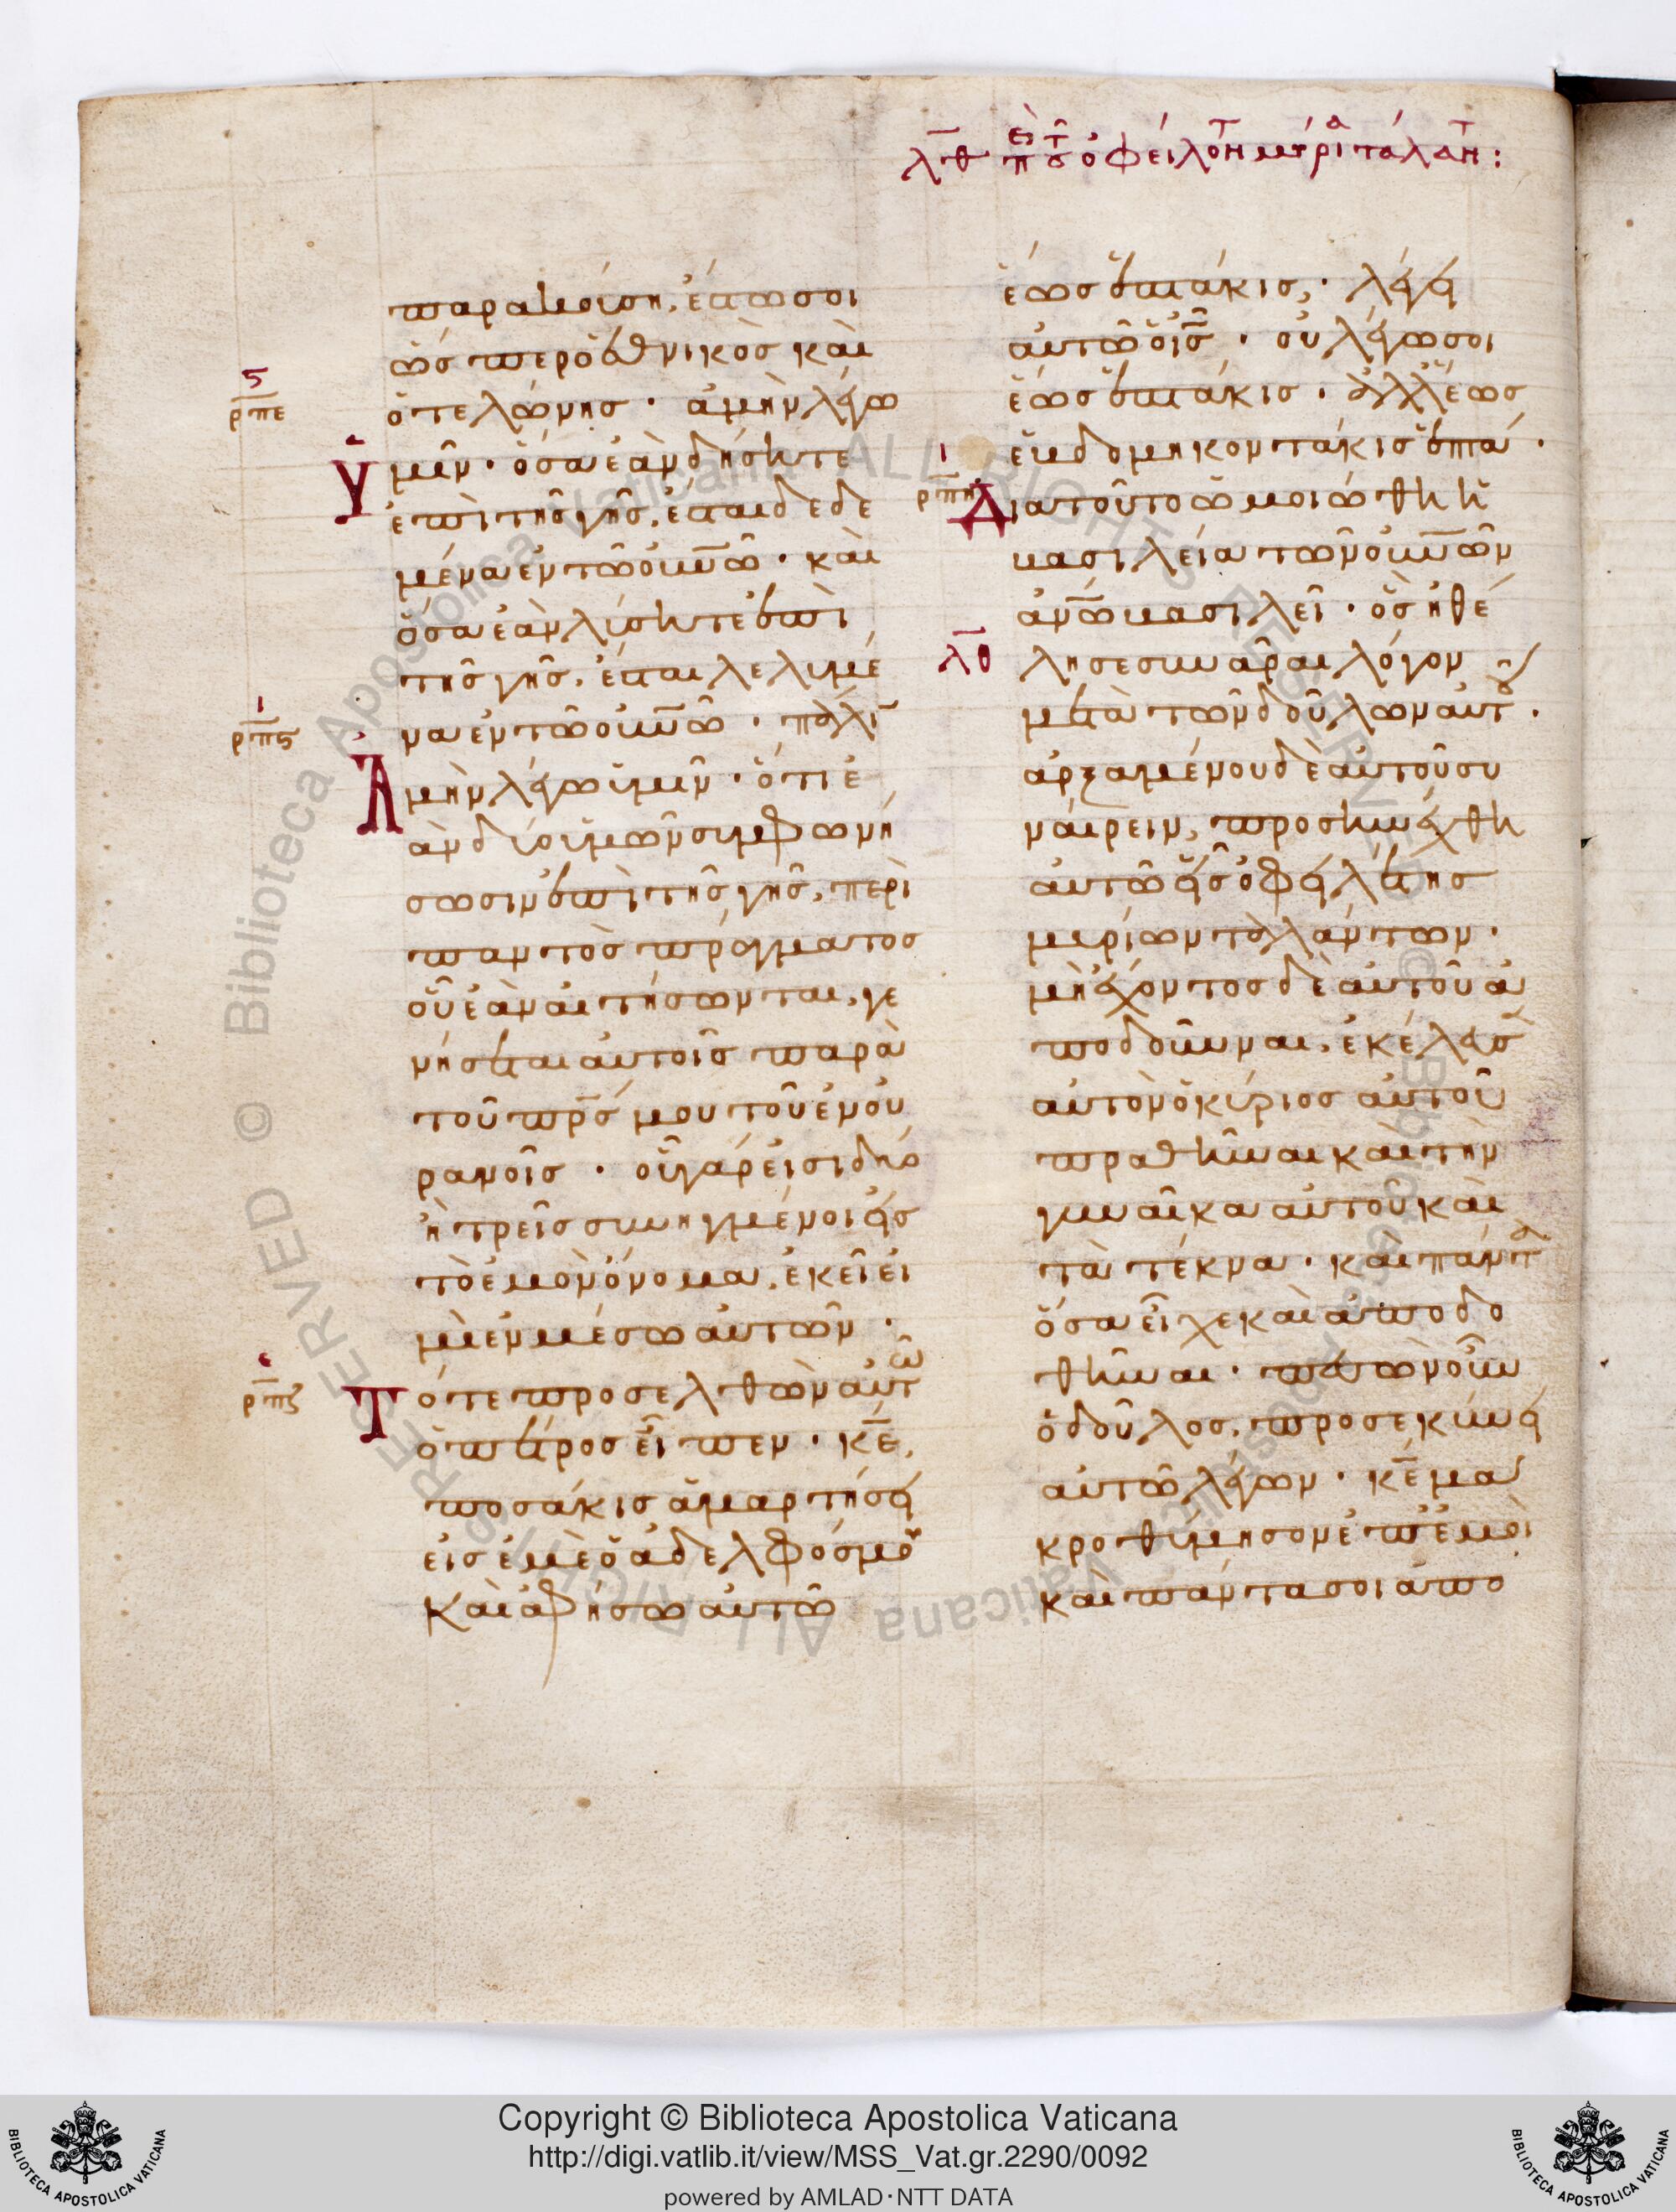 λθ περὶ τοῦ ὀφείλοντος μυρία τάλαντα:
παρακούση, ἔστω σοι
ὥσπερ ὁ ἐθνικὸς καὶ
ὁ τελώνης · ἀμὴν λέγω
ὑμῖν · ὅσα ἐὰν δήσητε
ἐπὶ τῆς γῆς, ἔσται δεδε
μένα ἐν τῶ οὐνῶ · καὶ
ὅσα ἐὰν λύσητε ἐπὶ
τῆς γῆς, ἔσται λελυμέ
να ἐν τῶ οὐνῶ · πάλιν
Ἀμὴν λέγω ὑμῖν · ὅτι ἐ
ὰν δύο ὑμῶν συμφωνή
σωσιν ἐπὶ τῆς γῆς, περὶ
παντὸς πράγματος
οὗ ἐὰν αἰτήσωνται, γε
νήσεται αὐτοῖς παρὰ
τοῦ πρς μου τοῦ ἐν οὐ
ρανοῖς · οὗ γάρ εἰσι δύο
ἢ τρεῖς συνηγμένοι εἰς
τὸ ἐμὸν ὄνομα, ἐκεῖ εἰ
μὶ ἐν μέσω αὐτῶν ·
Τότε προσελθὼν αὐτῶ
ὁ πέτρος εἶπεν · κε,
ποσάκις ἁμαρτήσει
εἰς ἐμὲ ὁ ἀδελφός μου
Καὶ ἀφήσω αὐτῶ
ἕως ἑπτάκις, · λέγει
αὐτῶ ὁ ις · οὐ λέγω σοι
ἕως ἑπτάκις · ἀλλ' ἕως
ἑβδομηκοντάκις ἑπτά ·
Διατοῦτο ὡμοιώθη ἡ
βασιλεία τῶν οὐνῶν
ἀνω βασιλεῖ · ὃς ἠθέ
λησε συνᾶραι λόγον
μετὰ τῶν δούλων αὐτοῦ ·
ἀρξαμένου δὲ αὐτοῦ συ
ναίρειν, προσηνέχθη
αὐτῶ εἷς ὀφειλέτης
μυρίων ταλάντων ·
μὴ ἔχοντος δὲ αὐτοῦ ἀ
ποδοῦναι, ἐκέλευσεν
αὐτὸν ὁ κύριος αὐτοῦ
πραθῆναι καὶ τὴν
γυναῖκα αὐτοῦ καὶ
τὰ τέκνα · καὶ πάντα
ὅσα εἶχε καὶ ἀποδο
θῆναι · πεσὼν οὖν
ὁ δοῦλος, προσεκύνει
αὐτῶ λέγων · κε μα
κροθύμησον ἐπ' ἐμοὶ
καὶ πάντα σοι ἀπο
ϛ
ρπε
ι
ρπϛ
ε
ρπζ
ι
ρπη
λθ
© Biblioteca Apostolica Vaticana ALL RIGHTS RESERVED © Biblioteca Apostolica Vaticana ALL RIGHTS RESERVED
BIBLIOTECA APOSTOLICA VATICANA
Copyright © Biblioteca Apostolica Vaticana
http://digi.vatlib.it/view/MSS_Vat.gr.2290/0092
powered by AMLAD·NTT DATA
BIBLIOTECA APOSTOLICA VATICANA